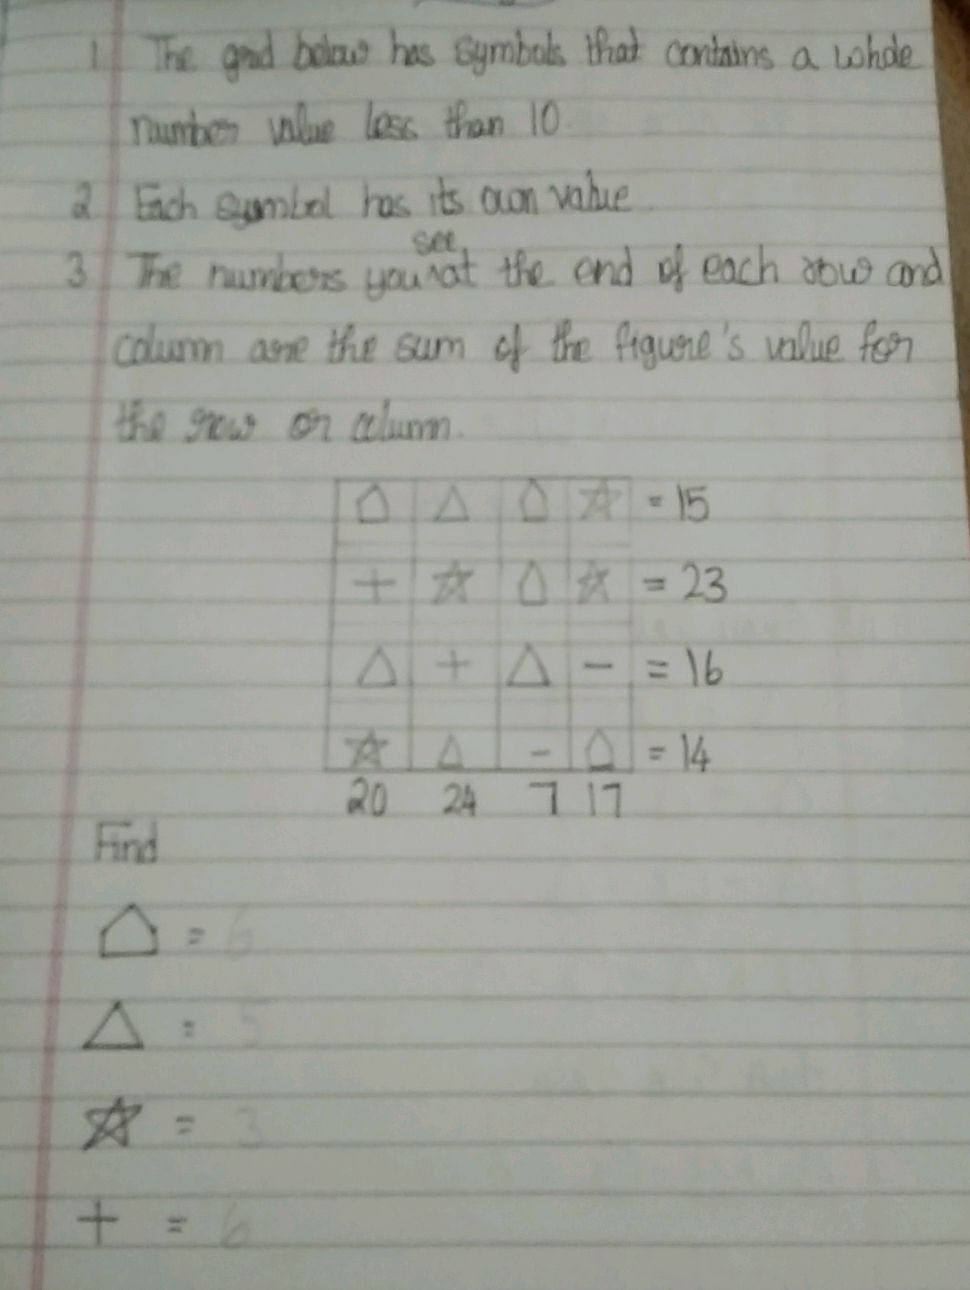 1 The grid below has symbols that contains a whole
number value less than 10
2 Each symbol has its own value
see
3 The numbers you ^ at the end of each row and
column are the sum of the figure's value for
the row or column.
= 15
+ = 23
+ - = 16
- = 14
20 24 7 17
Find
= 6
= 5
= 3
+ = 6